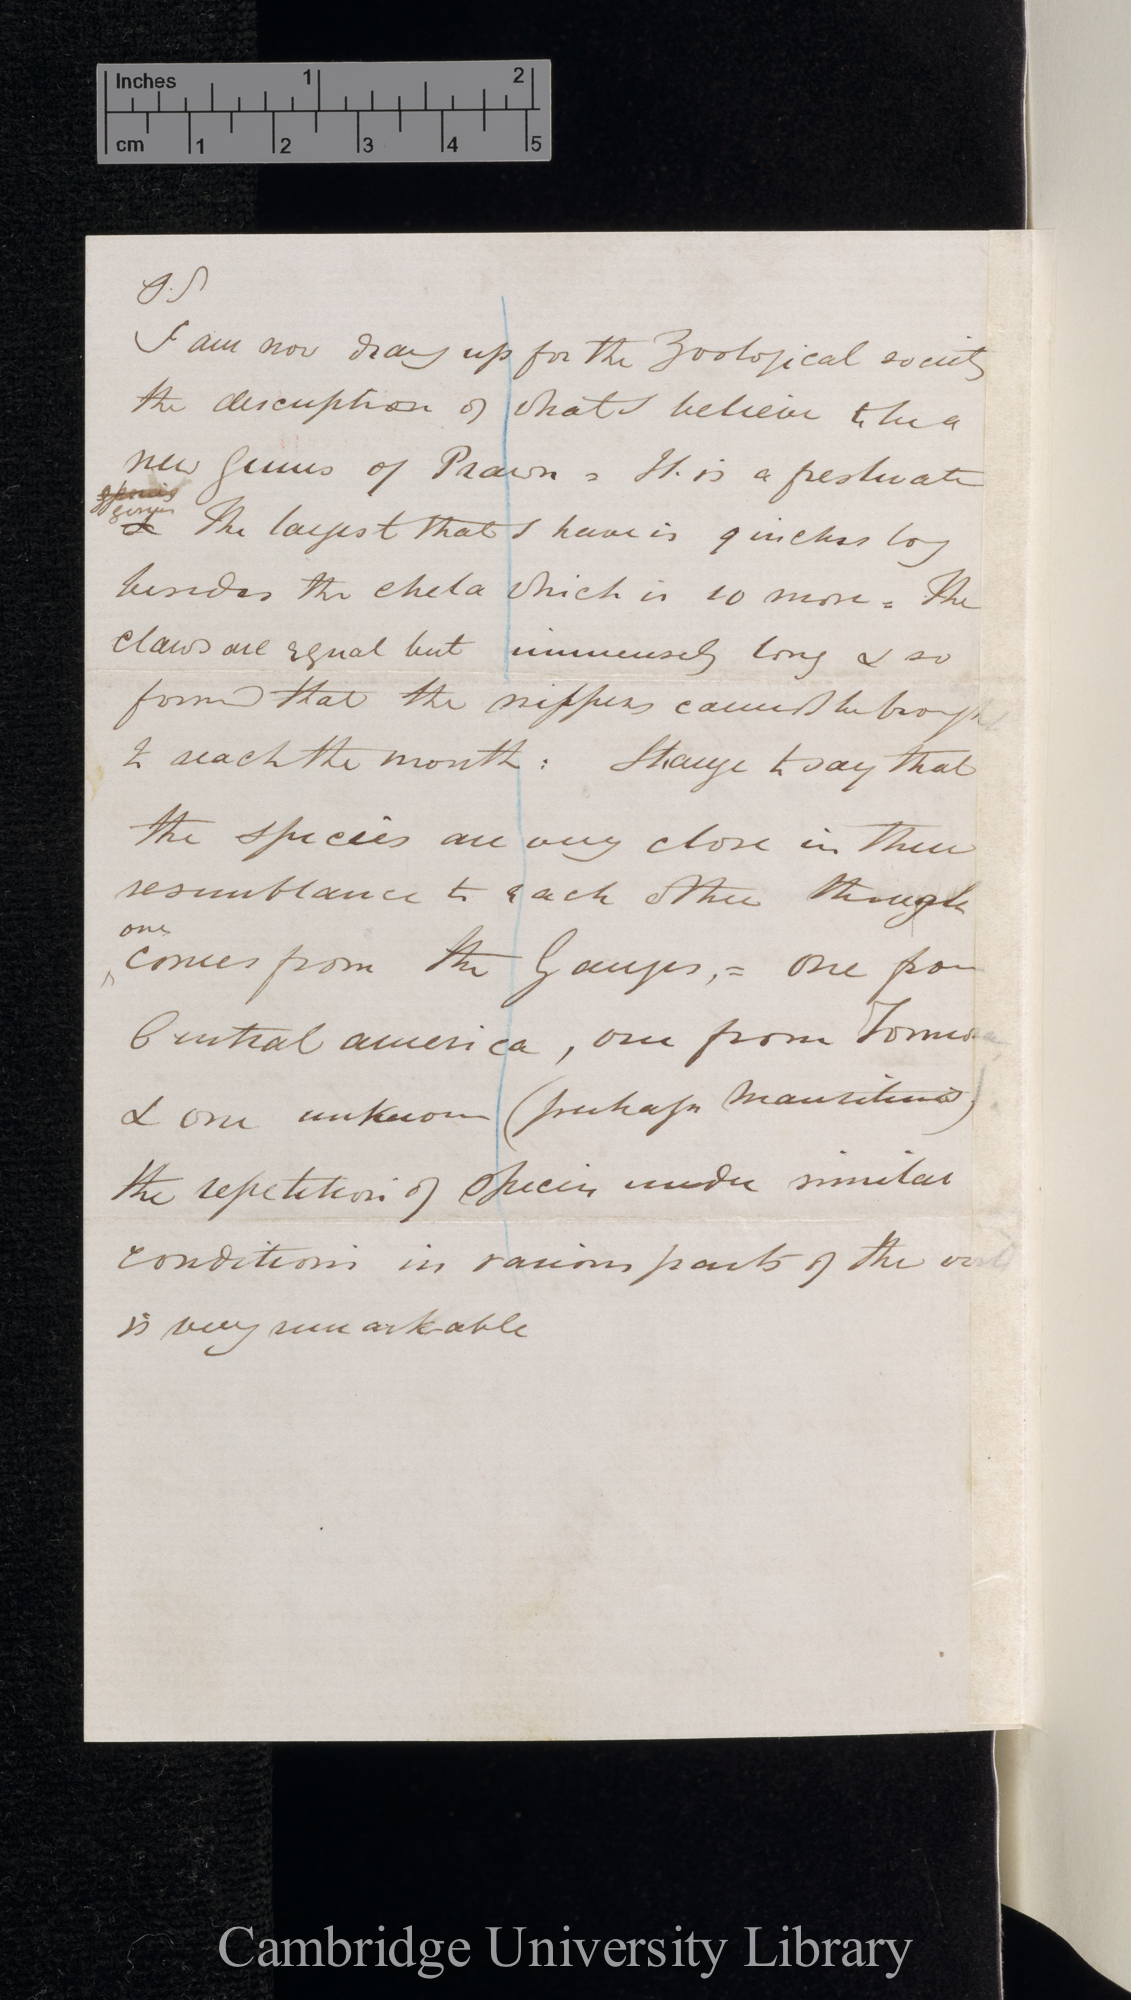 Inches 1 2
cm 1 2 3 4 5
P.S
I am now drawg up for the Zoological society
the description of what I believe to be a
new Genus of Prawn = It is a freshwater
species
genus
& The largest that I have is 9 inches long
besides the chela which is 10 more = The
claws are equal but immensely long & so
formed that the nippers cannot be brought
to reach the mouth : Strange to say that
the species are very close in their
resemblance to each other though
one
comes from the Ganges, = one from
Central america , one from Formosa,
& one unknown (perhaps Mauritius)
the repetition of species under similar
conditions in various parts of the world
is very remarkable
Cambridge University Library